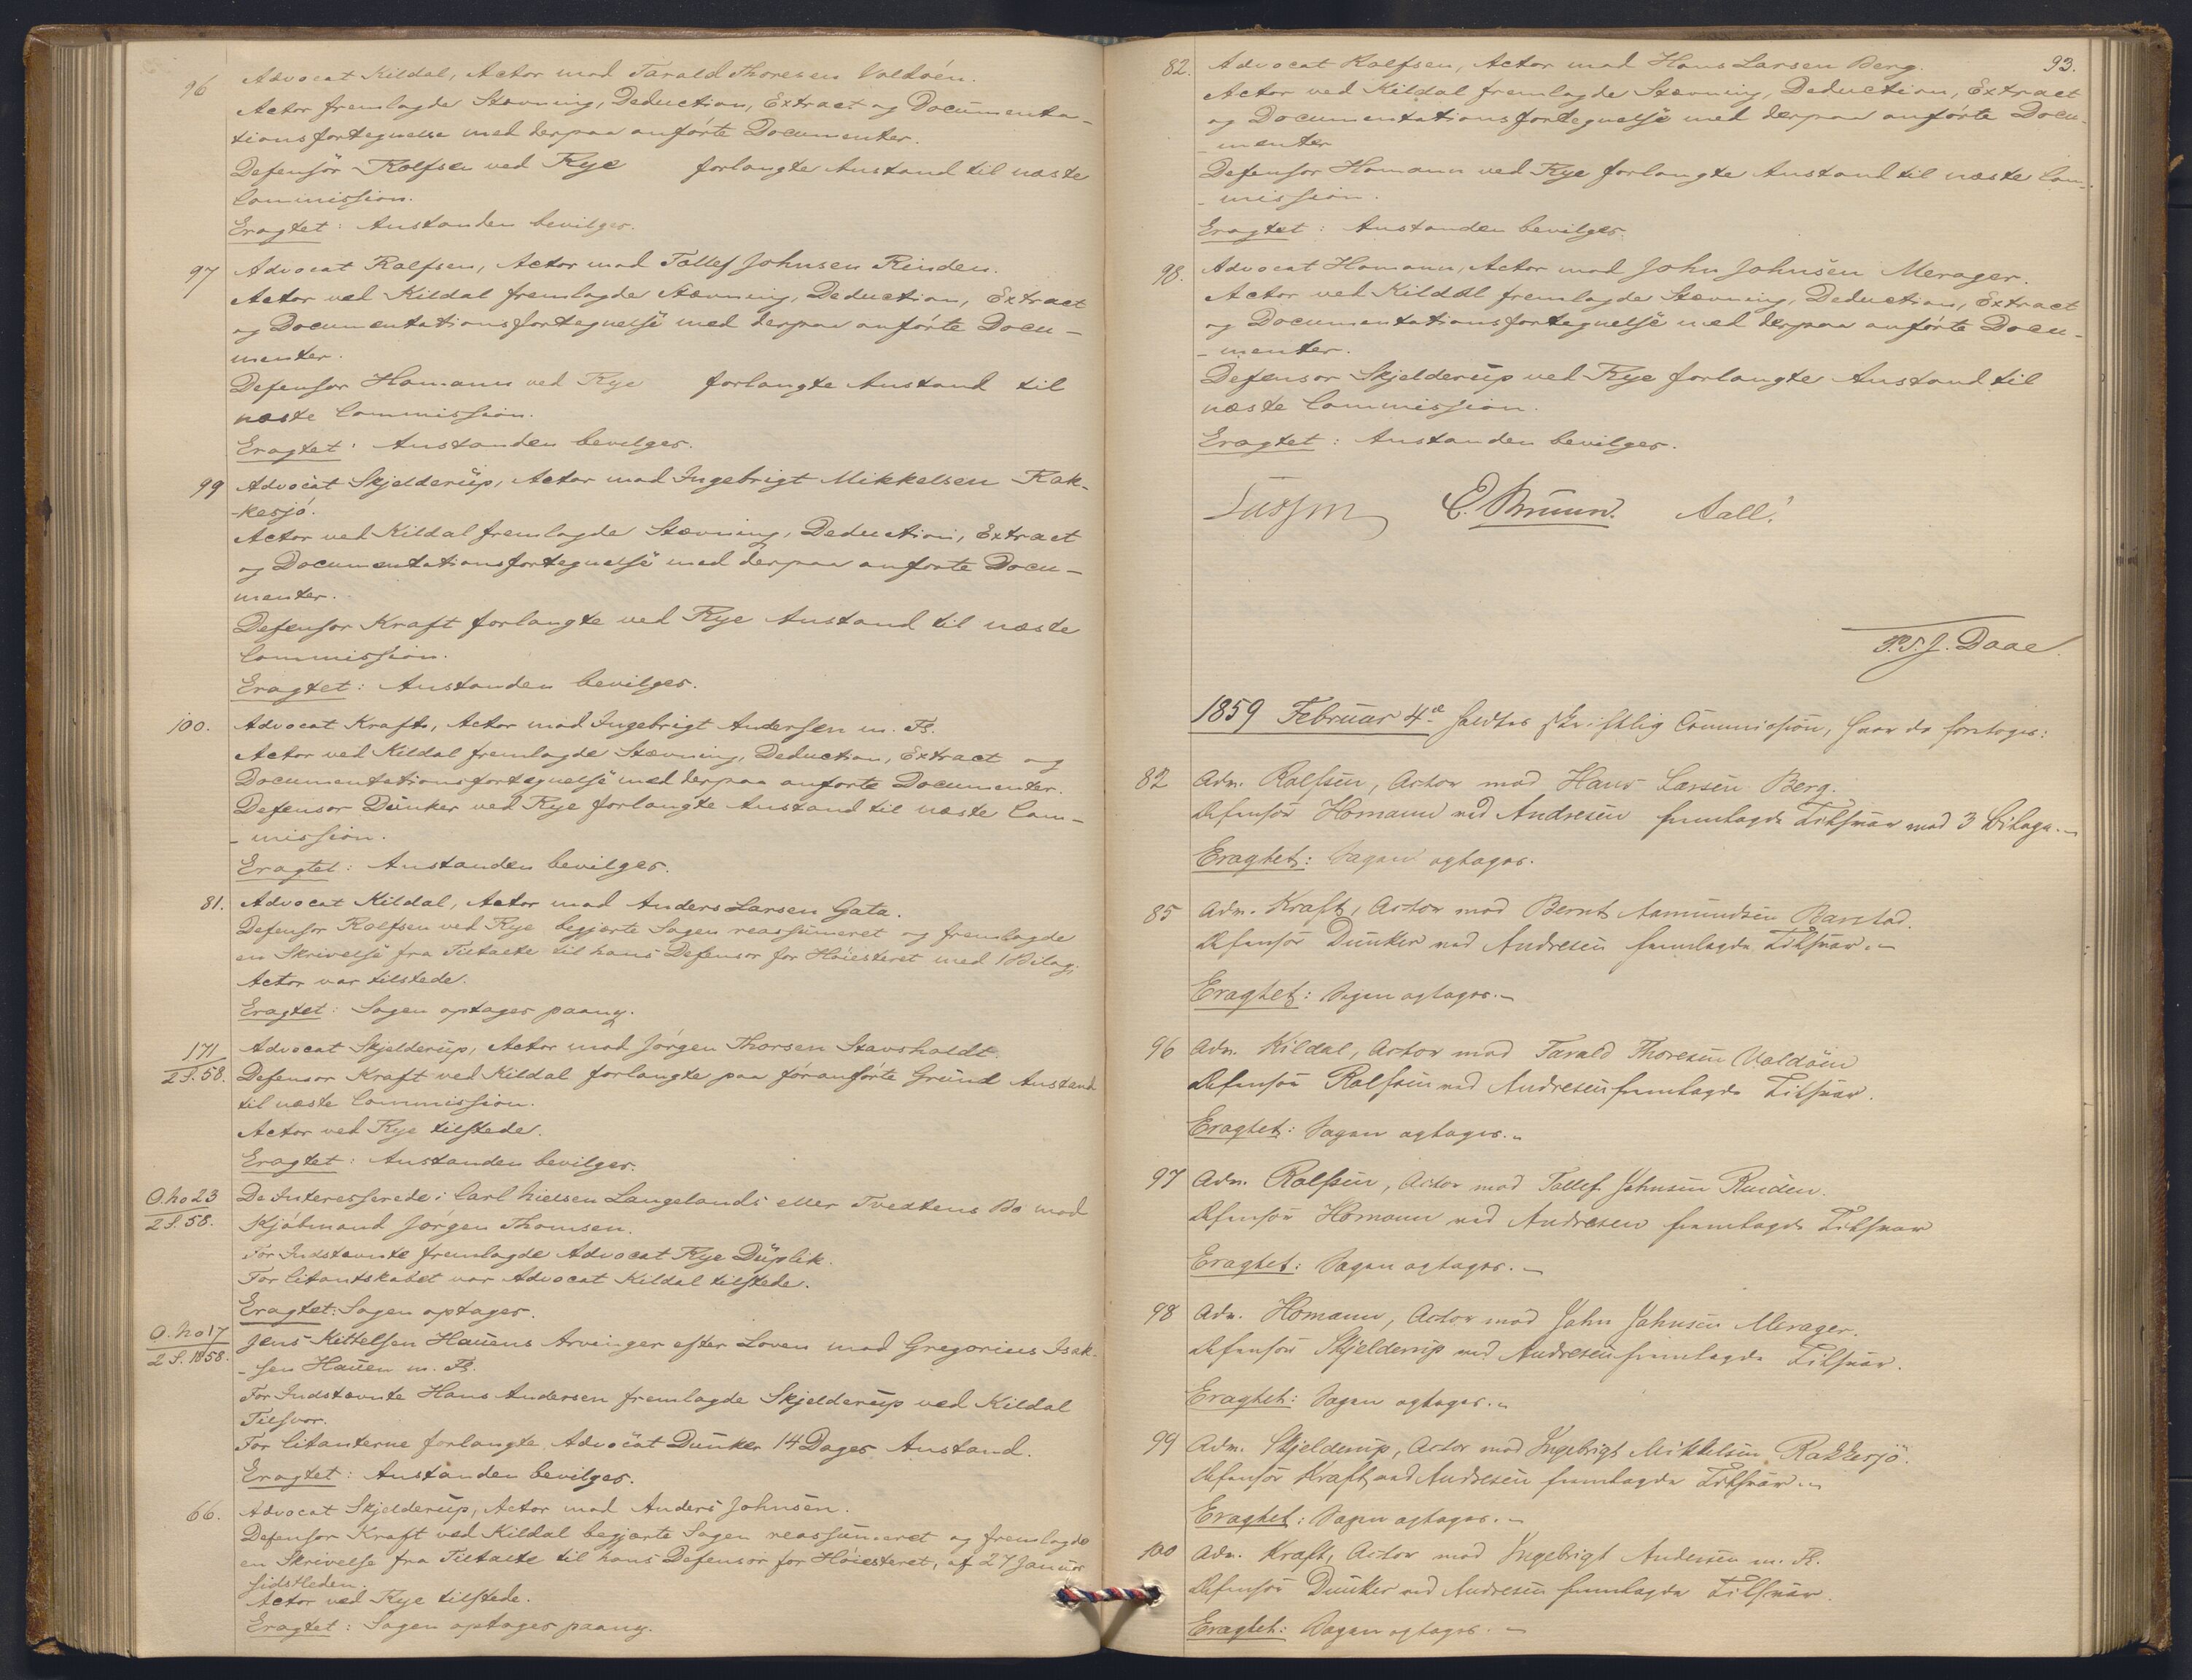 96 Advocat Kildal, Actor mod Tarald Thoresen Voldöen.
Actor fremlagde Stævning, Deduction, Extract og Documenta-
tionsfortegnelse med derpaa anførte Documenter.
Defensor Rolfsen ved Rye forlangte Anstand til næste
Commission.
Eragtet: Anstanden bevilges.
97 Advocat Rolfsen, Actor mod Tollef Johnsen Rinden.
Actor ved Kildal fremlagde Stævning, Deduction, Extract
og Documentationsfortegnelse med derpaa anførte Docu-
menter.
Defensor Homann ved Rye forlangte Anstand til
næste Commission.
Eragtet: Anstanden bevilges.
99 Advocat Skjelderup, Actor mod Ingebrigt Mikkelsen Rak-
-kesjö.
Actor ved Kildal fremlagde Stævning, Deduction, Extract
og Documentationsfortegnelse med derpaa anførte Docu-
menter.
Defensor Kraft forlangte ved Rye Anstand til næste
Commission.
Eragtet: Anstanden bevilges.
100. Advocat Kraft, Actor mod Ingebrigt Andersen m. Fl.
Actor ved Kildal fremlagde Stævning, Deduction, Extract og
Documentationsfortegnelse med derpaa anførte Documenter.
Defensor Dunker ved Rye forlangte Anstand til næste Com-
-mission.
Eragtet: Anstanden bevilges.
81. Advocat Kildal, Actor mod Anders Larsen Gata.
Defensor Rolfsen ved Rye begjærte Sagen reassumeret og fremlagde
en Skrivelse fra Tiltalte til hans Defensor for Høiesteret med 1 Bilag;
Actor var tilstede.
Eragtet: Sagen optages paany.
171
2 S. 58. Advocat Skjelderup, Actor mod Jörgen Thorsen Stavsholdt.
Defensor Kraft ved Kildal forlangte paa foranførte Grund Anstand
til næste Commission.
Actor ved Rye tilstede.
Eragtet: Anstanden bevilges.
O. No 23
2 S. 58. De Interesserede i Carl Nielsen Langelands eller Tvedtens Bo mod
Kjøbmand Jørgen Thomsen.
For Indstevnte fremlagde Advocat Rye Duplik.
For Citantskabet var Advocat Kildal tilstede.
Eragtet: Sagen optages.
O. No 17
2 S. 1858. Jens Kittelsen Hauens Arvinger efter Loven mod Gregorius Isak-
-sen Hauen m. Fl.
For Indstævnte Hans Andersen fremlagde Skjelderup ved Kildal
Tilsvar.
For Citanterne forlangte Advocat Dunker 14 Dages Anstand.
Eragtet: Anstanden bevilges.
66. Advocat Skjelderup, Actor mod Anders Johnsen.
Defensor Kraft ved Kildal begjærte Sagen reassumeret og fremlagde
en Skrivelse fra Tiltalte til hans Defensor for Høiesteret, af 27 Januar
sidstleden.
Actor ved Rye tilstede.
Eragtet: Sagen optages paany.
93.
82. Advocat Rolfsen, Actor mod Hans Larsen Berg.
Actor ved Kildal fremlagde Stævning, Deduction, Extract
og Documentationsfortegnelse med derpaa anførte Docu-
-menter
Defensor Homann ved Rye forlangte Anstand til næste Com-
-mission.
Eragtet: Anstanden bevilges.
98. Advocat Homann, Actor mod John Johnsen Merager.
Actor ved Kildal fremlagde Stævning, Deduction, Extract
og Documentationsfortegnelse med derpaa anførte Docu-
-menter.
Defensor Skjelderup ved Rye forlangte Anstand til
næste Commission.
Eragtet: Anstanden bevilges.
Lasson E. Bruun. Aall.
Daae.
1859 Februar 4de holdtes skriftlig Commission, hvor da foretoges:
82 Adv. Rolfsen, Actor mod Hans Larsen Berg.
Defensor Homann ved Andresen fremlagde Tilsvar med 3 Bilage.-
Eragtet: Sagen optages.
85 Adv. Kraft, Actor mod Bernt Aamundsen Barstad.
Defensor Dunker ved Andresen fremlagde Tilsvar.-
Eragtet: Sagen optages.-
96 Adv. Kildal, Actor mod Tarald Thoresen Voldöen
Defensor Rolfsen ved Andresen fremlagde Tilsvar.
Eragtet: Sagen optages.-
97 Adv. Rolfsen, Actor mod Tollef Johnsen Rinden.
Defensor Homann ved Andresen fremlagde Tilsvar
Eragtet: Sagen optages.-
98 Adv. Homann, Actor mod John Johnsen Merager.
Defensor Skjelderup ved Andresen fremlagde Tilsvar.
Eragtet: Sagen optages.-
99 Adv. Skjelderup, Actor mod Ingebrigt Mikkelsen Rakkesjö.
Defensor Kraft ved Andresen fremlagde Tilsvar.-
Eragtet: Sagen optages.-
100 Adv. Kraft, Actor mod Ingebrigt Andersen m. Fl.
Defensor Dunker ved Andresen fremlagde Tilsvar.
Eragtet: Sagen optages.-